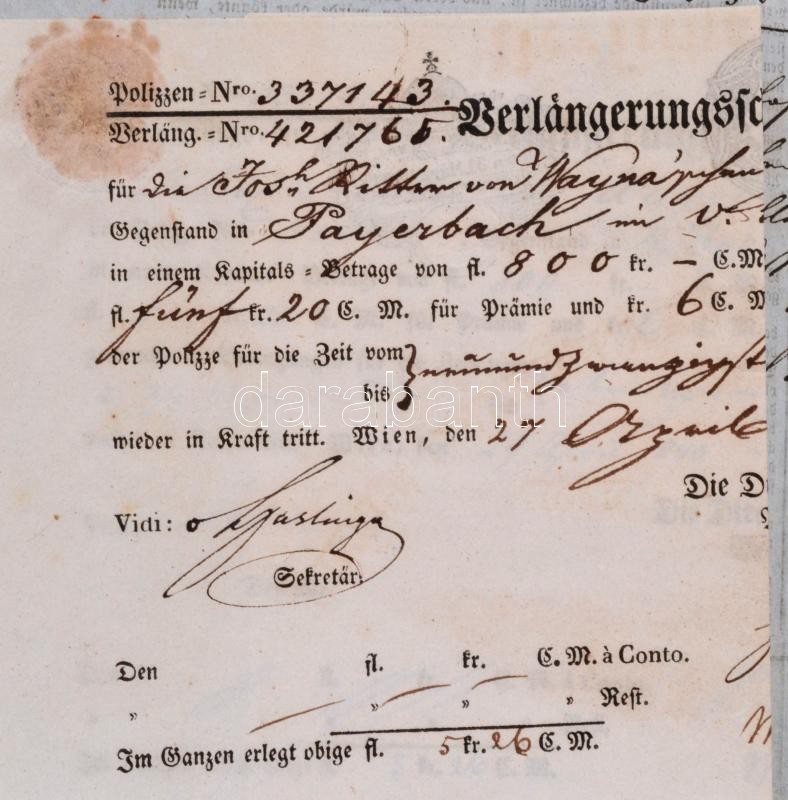 Polizzen=Nro. 337143.
Verläng.=Nro. 421765. Verlängerungssc
für die Josh Ritter von Wayna'schen
Gegenstand in Payerbach im V.
in einem Kapitals=Betrage von fl. 800 kr. – C.M
fl. fünf kr. 20 C. M. für Prämie und kr. 6 C. M
der Polizze für die Zeit vom neunundzwanzigst
bis
darabanth
wieder in Kraft tritt. Wien, den 27 April
Die D
Vidi:
Sekretär.
Den fl. kr. C. M. à Conto.
„ „ „ „ Rest.
Im Ganzen erlegt obige fl. 5 kr. 26 C. M.